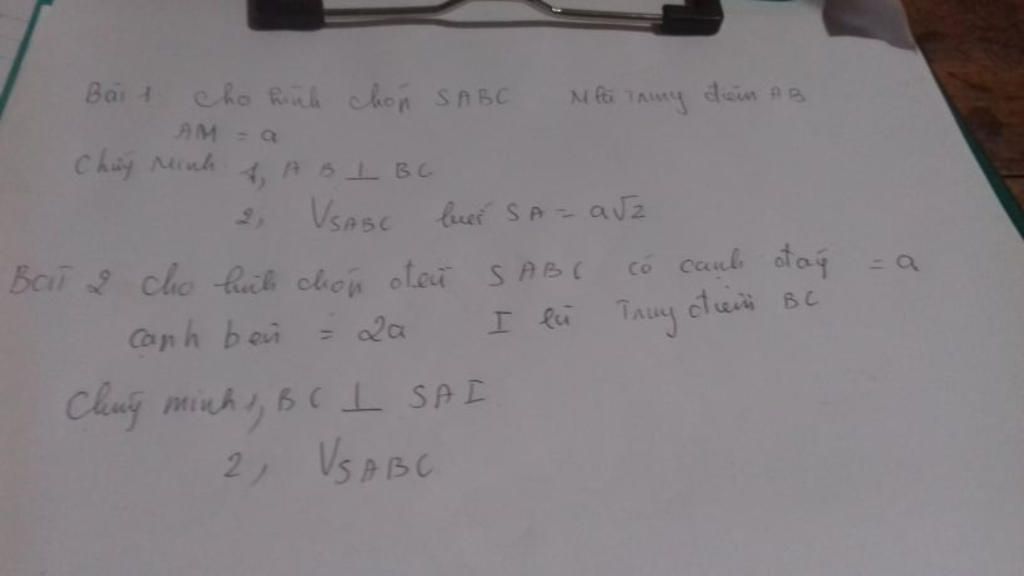 Bài 1 cho hình chóp SABC M là Trung điểm AB
AM = a
Chứng Minh 1, AB ⊥ BC
2, VSABC biết SA = a√2
Bài 2 cho hình chóp đều SABC có cạnh đáy = a
cạnh bên = 2a I là Trung điểm BC
Chứng minh 1, BC ⊥ SAI
2, VSABC